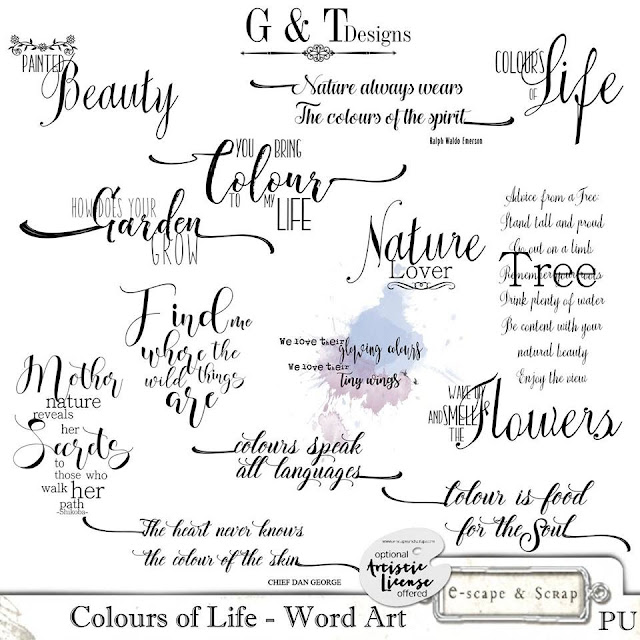 G & T Designs
PAINTED
Beauty
Nature always wears
The colours of the spirit
Ralph Waldo Emerson
COLOURS
OF
Life
YOU BRING
Colour
TO MY
LIFE
HOW DOES YOUR
Garden
GROW
Nature
Lover
Advice from a Tree:
Stand tall and proud
Go out on a limb
Remember your roots
Tree
Drink plenty of water
Be content with your
natural beauty
Enjoy the view
Find me
where the
wild things
are
We love their glowing colours
We love their tiny wings
Mother
nature
reveals
her
Secrets
to
those who
walk her
path
-Shikoba-
WAKE UP
AND SMELL
THE
Flowers
colours speak
all languages
Colour is food
for the Soul
The heart never knows
the colour of the skin
CHIEF DAN GEORGE
optional
Artistic
License
offered
e-scape & Scrap
Colours of Life - Word Art
PU